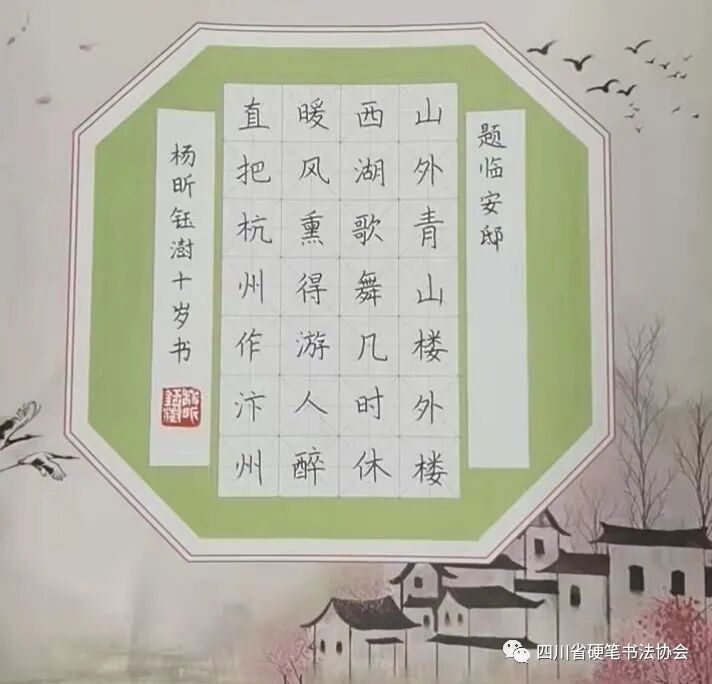 题临安邸
山外青山楼外楼
西湖歌舞几时休
暖风熏得游人醉
直把杭州作汴州
杨昕钰澍十岁书
四川省硬笔书法协会